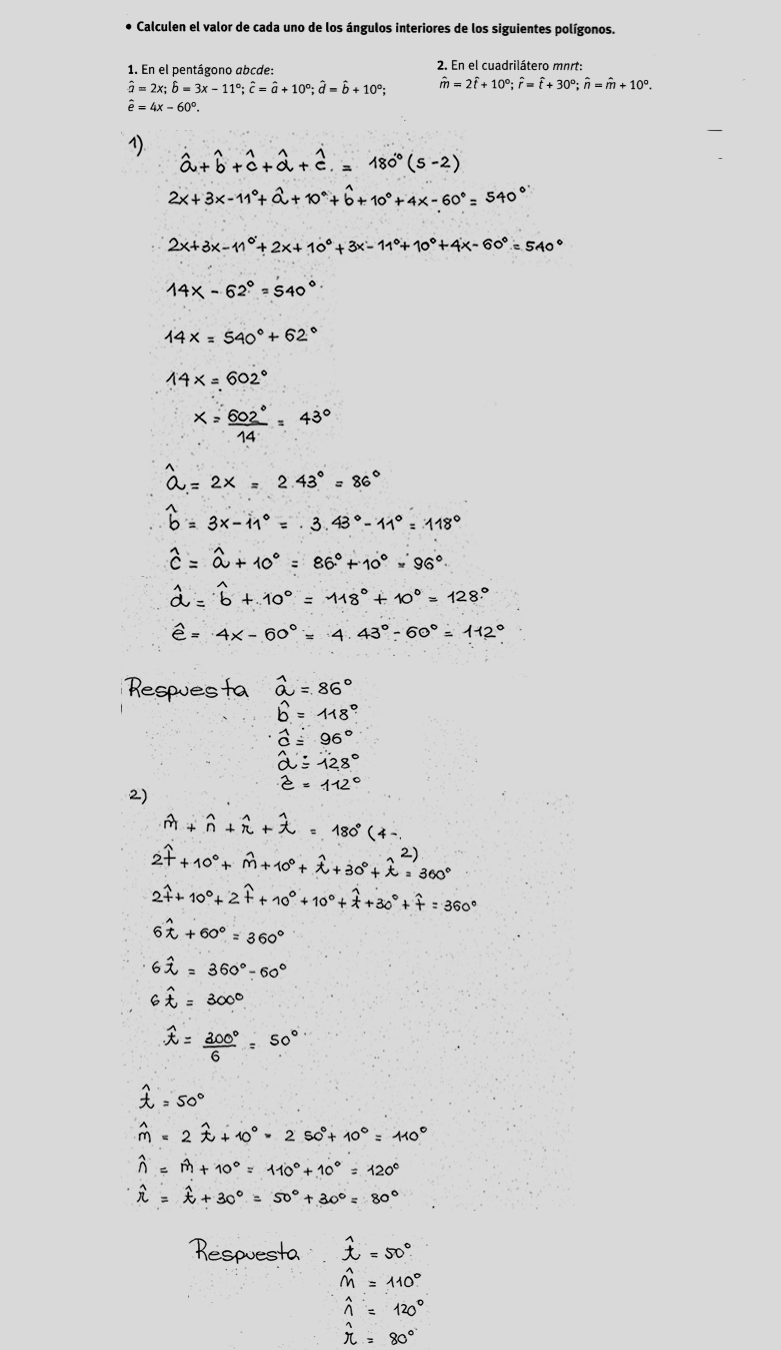 • Calculen el valor de cada uno de los ángulos interiores de los siguientes polígonos.
1. En el pentágono abcde:
â = 2x; b̂ = 3x – 11°; ĉ = â + 10°; d̂ = b̂ + 10°;
ê = 4x – 60°.
2. En el cuadrilátero mnrt:
m̂ = 2t̂ + 10°; r̂ = t̂ + 30°; n̂ = m̂ + 10°.
1)
â + b̂ + ĉ + d̂ + ê. = 180° (5 - 2)
2x + 3x - 11° + â + 10° + b̂ + 10° + 4x - 60° = 540°
2x + 3x - 11° + 2x + 10° + 3x - 11° + 10° + 4x - 60° = 540°
14x - 62° = 540°
14x = 540° + 62°
14x = 602°
x = 602°/14 = 43°
â = 2x = 2 . 43° = 86°
b̂ = 3x - 11° = 3 . 43° - 11° = 118°
ĉ = â + 10° = 86° + 10° = 96°
d̂ = b̂ + 10° = 118° + 10° = 128°
ê = 4x - 60° = 4 . 43° - 60° = 112°
Respuesta â = 86°
b̂ = 118°
ĉ = 96°
d̂ = 128°
ê = 112°
2)
m̂ + n̂ + r̂ + t̂ = 180° (4 - 2)
2t̂ + 10° + m̂ + 10° + t̂ + 30° + t̂ = 360°
2t̂ + 10° + 2t̂ + 10° + 10° + t̂ + 30° + t̂ = 360°
6t̂ + 60° = 360°
6t̂ = 360° - 60°
6t̂ = 300°
t̂ = 300°/6 = 50°
t̂ = 50°
m̂ = 2 t̂ + 10° = 2 50° + 10° = 110°
n̂ = m̂ + 10° = 110° + 10° = 120°
r̂ = t̂ + 30° = 50° + 30° = 80°
Respuesta t̂ = 50°
m̂ = 110°
n̂ = 120°
r̂ = 80°